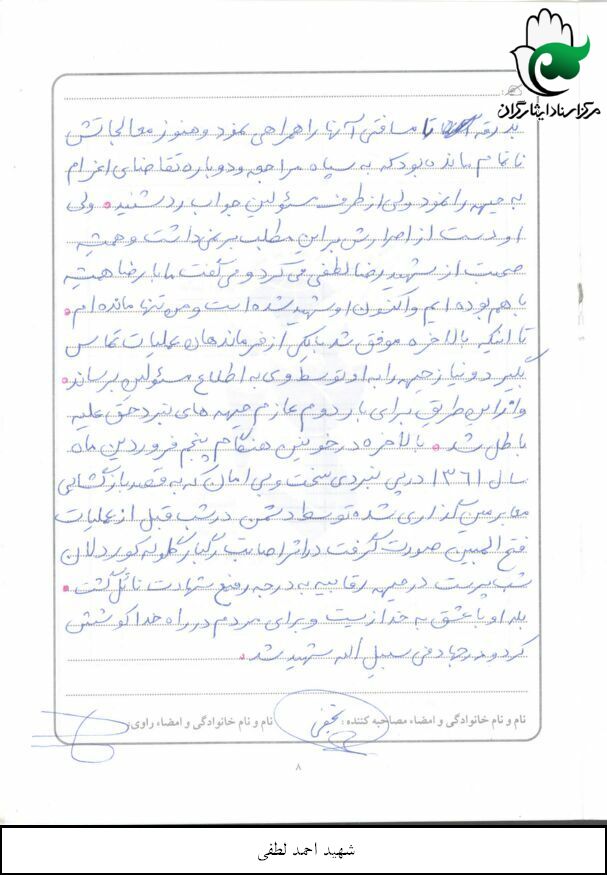 مرکز اسناد ایثارگران
بدرقه تا مسافتی آنها را همراهی نمود و هنوز معالجاتش
ناتمام مانده بود که به سپاه مراجعه و دوباره تقاضای اعزام
به جبهه را نمود ولی از طرف مسئولین جواب رد شنید. ولی
او دست از اصرارش بر این مطلب بر نمی داشت و همیشه
صحبت از شهید رضا لطفی می کرد و می گفت ما با رضا همیشه
با هم بوده ایم و اکنون او شهید شده است و من تنها مانده ام.
تا اینکه بالاخره موفق شد با یکی از فرماندهان عملیات تماس
بگیرد و نیاز جبهه را به او توسط وی به اطلاع مسئولین برساند.
و از این طریق برای بار دوم عازم جبهه های نبرد حق علیه
باطل شد. بالاخره در خونین هنگام پنجم فروردین ماه
سال ۱۳۶۱ در پی نبردی سخت و بی امان که به قصد بازگشایی
معابر مین گذاری شده توسط دشمن در شب قبل از عملیات
فتح المبین صورت گرفت در اثر اصابت رگبار گلوله کوردلان
شب پرست در جبهه رقابیه به درجه رفیع شهادت نائل گشت.
بله او با عشق به خدا زیست و برای مردم در راه خدا کوشش
کرد و در جهاد فی سبیل الله شهید شد.
نام و نام خانوادگی و امضاء مصاحبه کننده: نجفی نام و نام خانوادگی و امضاء راوی:
۸
شهید احمد لطفی